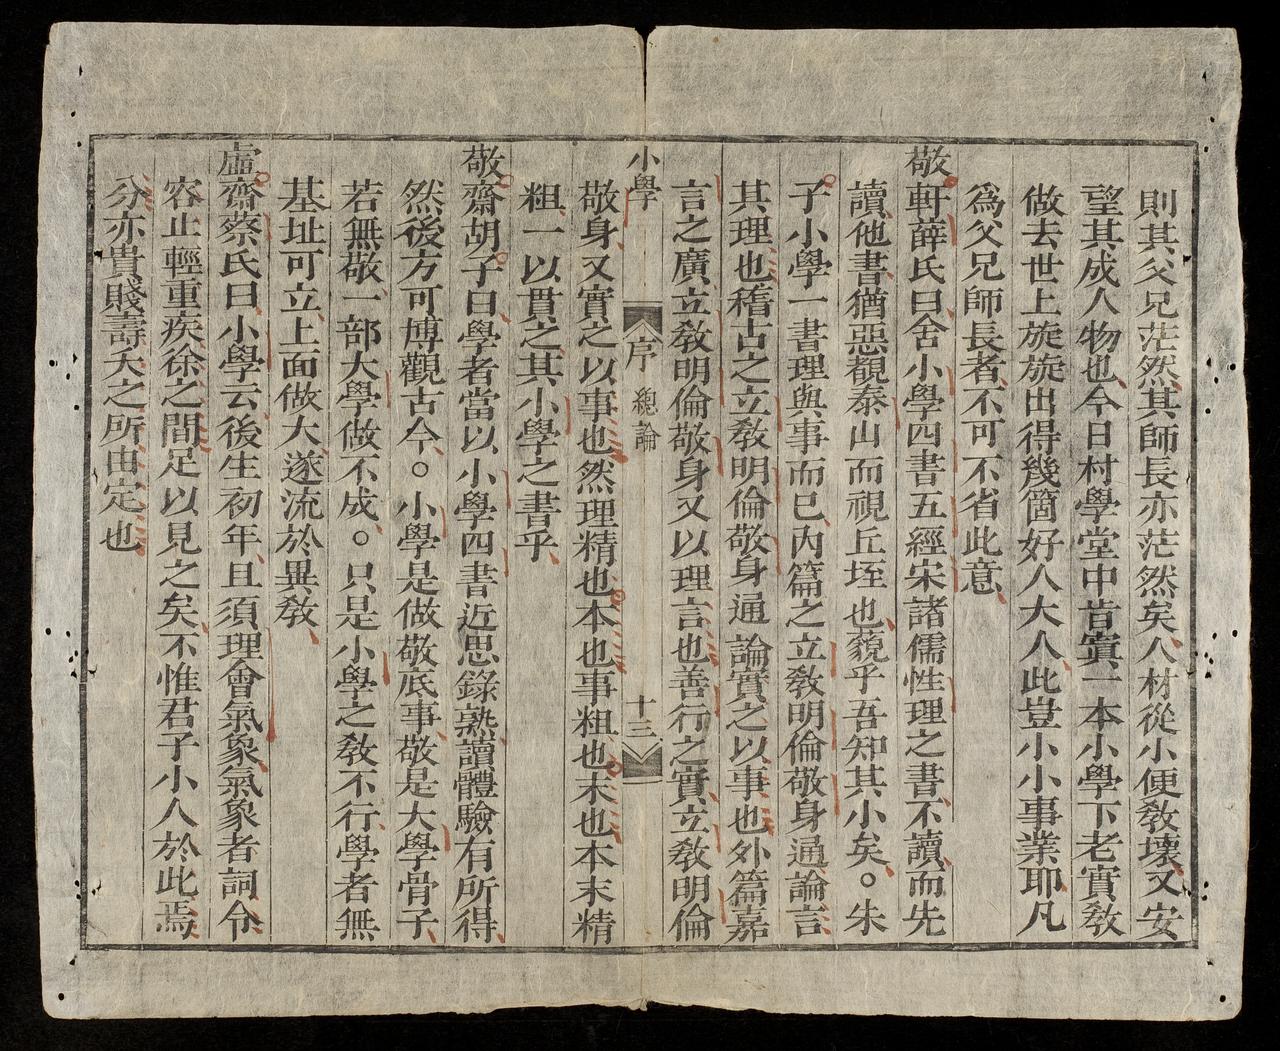 則其父兄茫然其師長亦茫然矣人材從小便敎壞又安
望其成人物也今日村學堂中肯實一本小學下老實敎
做去世上旋旋出得幾箇好人大人此豈小小事業耶凡
爲父兄師長者不可不省此意
敬軒薛氏曰舍小學四書五經宋諸儒性理之書不讀而先
讀他書猶惡覩泰山而視丘垤也藐乎吾知其小矣○朱
子小學一書理與事而已內篇之立敎明倫敬身通論言
其理也稽古之立敎明倫敬身通論實之以事也外篇嘉
言之廣立敎明倫敬身又以理言也善行之實立敎明倫
小學 序 總論 十三
敬身又實之以事也然理精也本也事粗也末也本末精
粗一以貫之其小學之書乎
敬齋胡子曰學者當以小學四書近思錄熟讀體驗有所得
然後方可博觀古今○小學是做敬底事敬是大學骨子
若無敬一部大學做不成○只是小學之敎不行學者無
基址可立上面做大遂流於異敎
虛齋蔡氏曰小學云後生初年且須理會氣象氣象者詞令
容止輕重疾徐之間足以見之矣不惟君子小人於此焉
分亦貴賤壽夭之所由定也